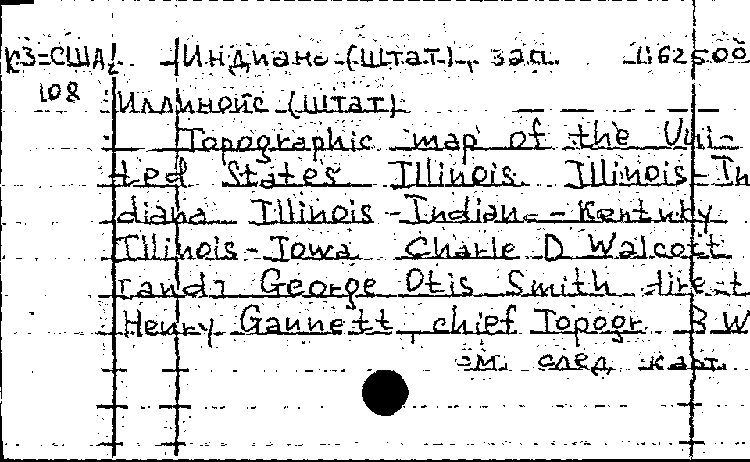 К3-США/ Индиана (штат), зап. 1:62500
108
Иллинойс (штат)
Topographic map of the Uni-
ted States Illinois. Illinois-In
diana Illinois-Indiana-Kentucky
Illinois-Iowa Charle D Walcott
[and] George Otis Smith direct
Henry Gannett, chief Topogr. B W
см. след. карт.